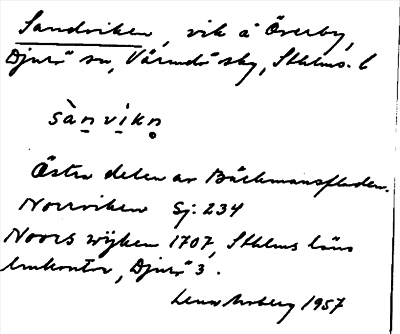 Sandviken, vik å Överby,
Djurö sn, Värmdö skg, Sthlms. l
sànvikn
Östra delen av Båtmansfladen.
Norrviken Sj: 234
Noors wijken 1707, Sthlms läns
lmkontor, Djurö 3.
1957